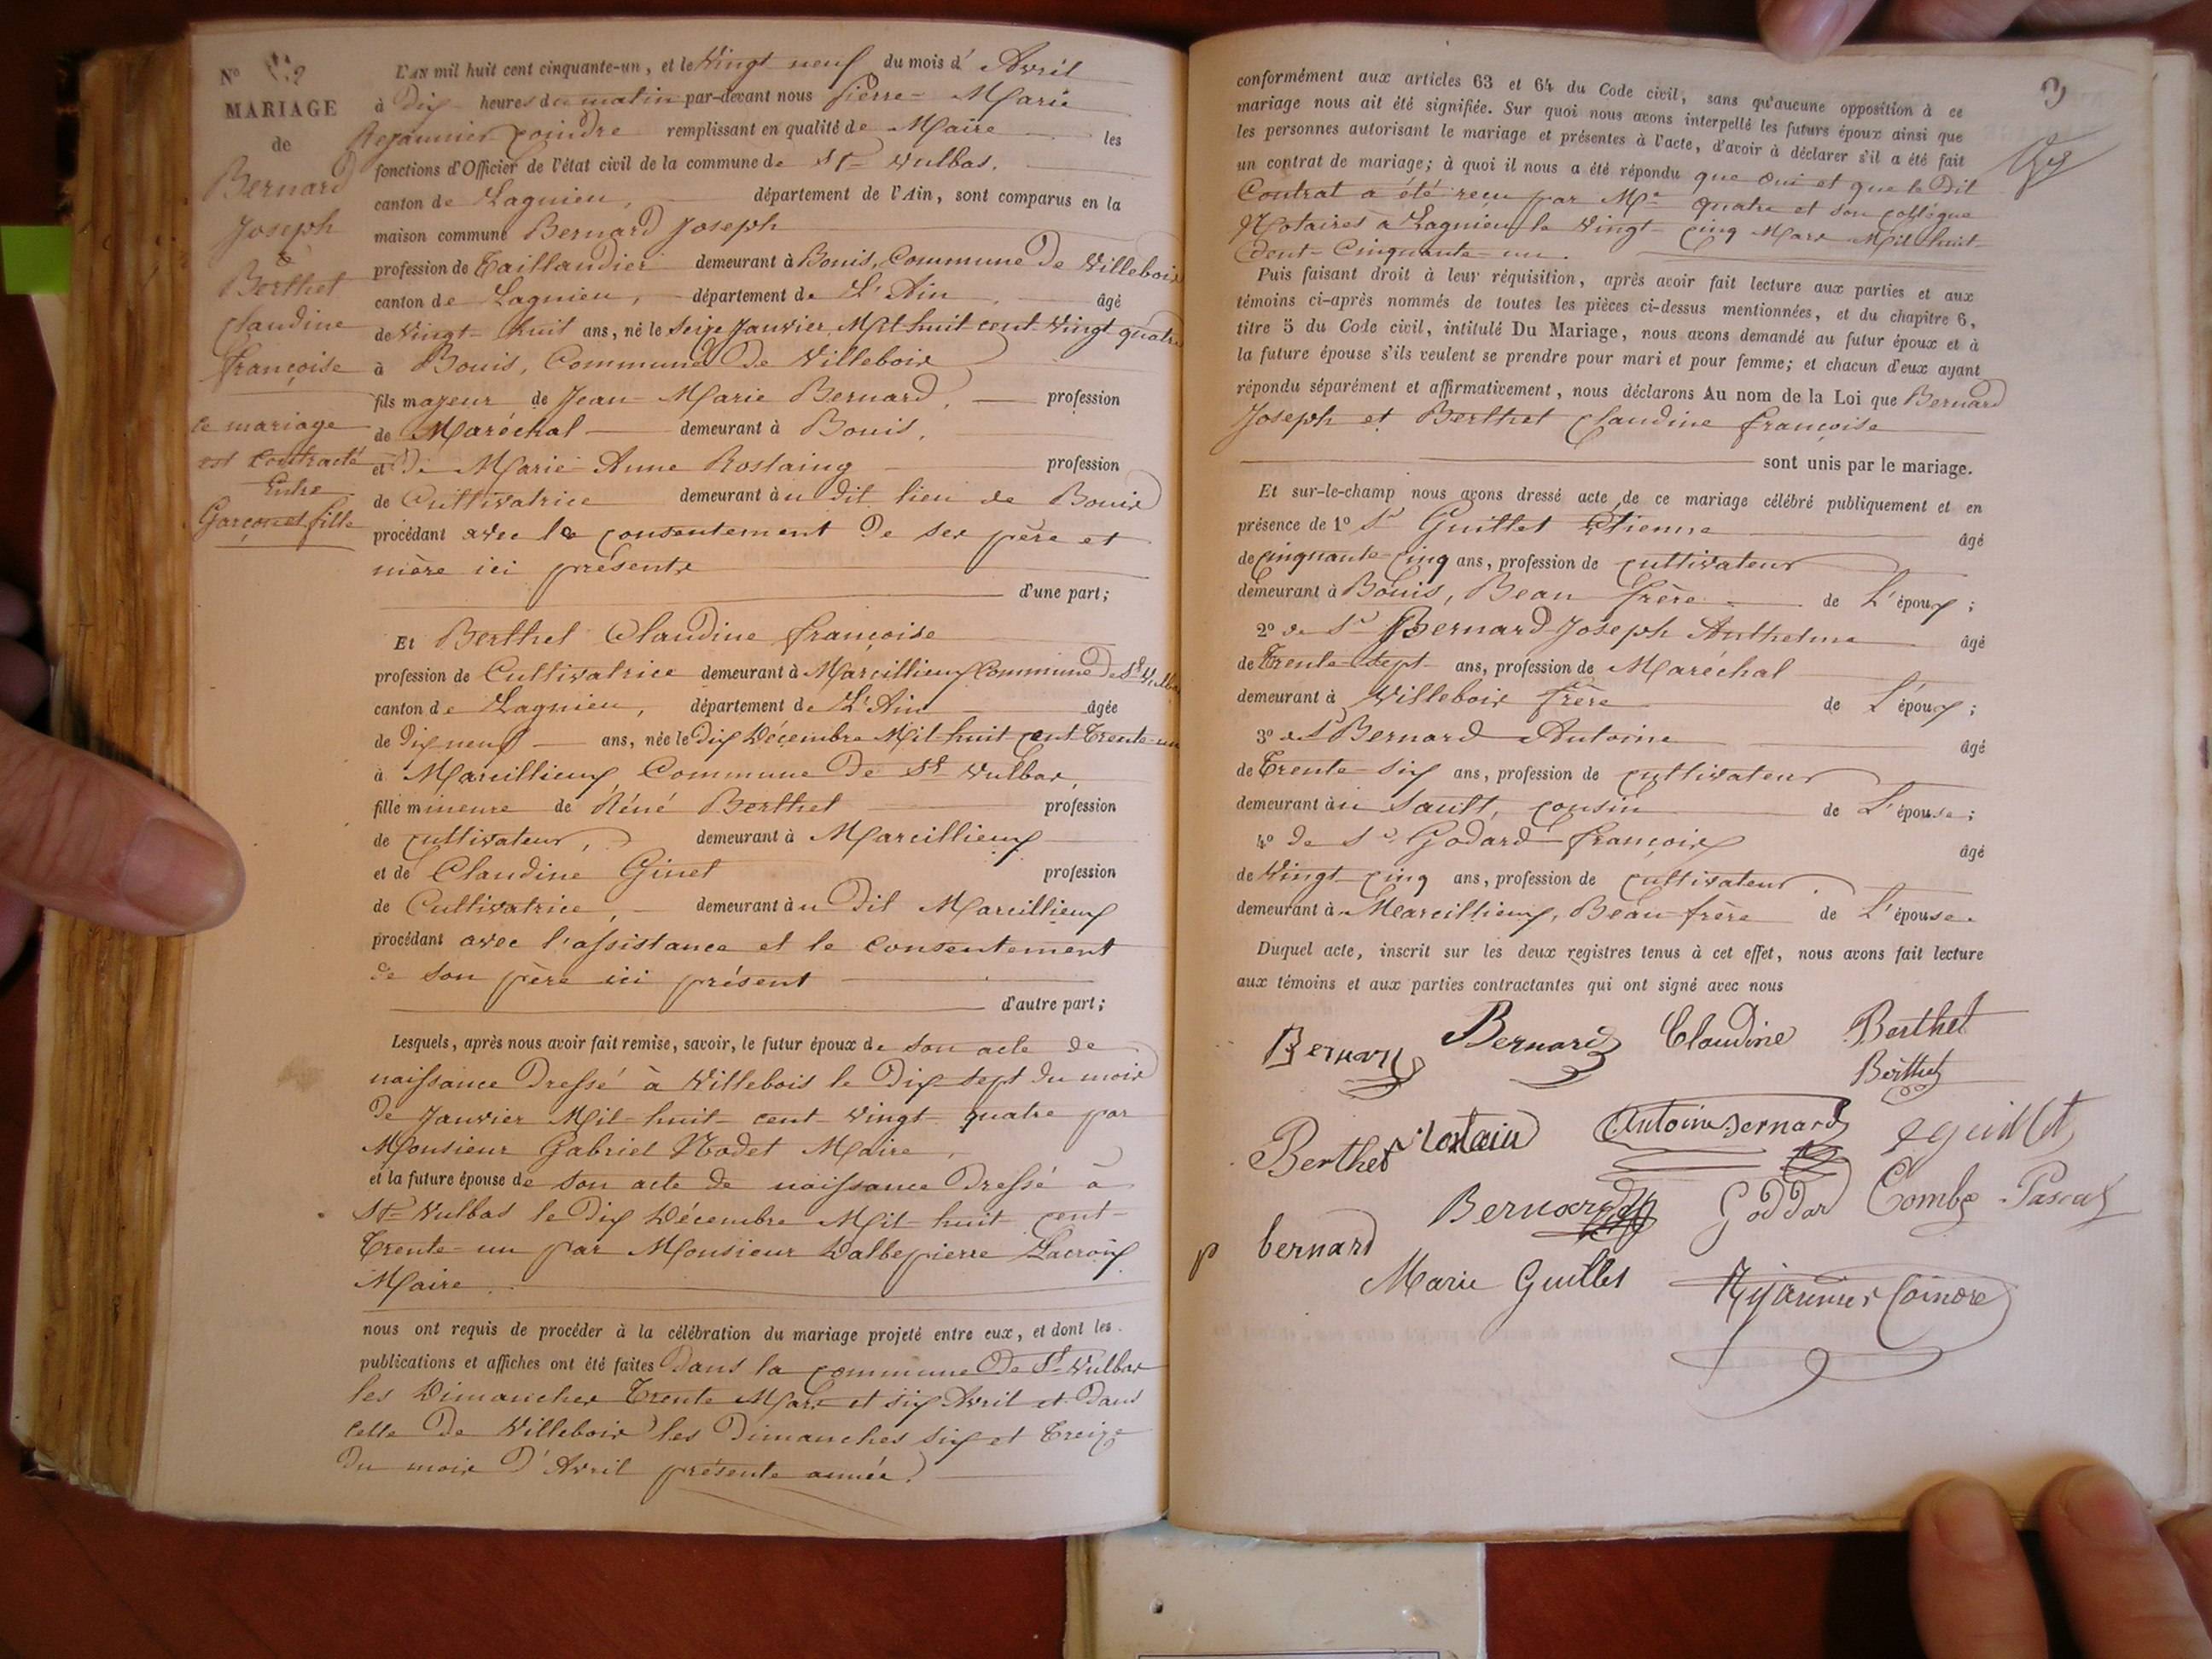 N°
MARIAGE
de
Bernard
Joseph
&
Berthet
Claudine
françoise
le mariage
est contracté
Entre
Garçon et fille
L'AN mil huit cent cinquante-un, et le Vingt neuf du mois d' Avril
à Dix heures du matin par-devant nous pierre-Marie
Rejaunier Coindre remplissant en qualité de Maire les
fonctions d'Officier de l'état civil de la commune de St Vulbas.
canton de Lagnieu, département de l'Ain, sont comparus en la
maison commune Bernard Joseph
profession de Taillandier demeurant à Bouis, Commune De Villebois
canton de Lagnieu, département de L'Ain âgé
de Vingt-huit ans, né le Seize Janvier Mil huit cent Vingt quatre
à Bouis, Commune De Villebois
fils majeur de Jean-Marie Bernard, profession
de Maréchal demeurant à Bouis,
et De Marie-Anne Rostaing profession
de Cultivatrice demeurant àu dit lieu de Bouis
procédant avec le consentement De ses père et
mère ici présents
d'une part;
Et Berthet Claudine françoise
profession de Cultivatrice demeurant à Marcillieux Commune De St Vulbas
canton de Lagnieu, département de L'Ain âgée
de Dix neuf ans, née le Dix Décembre Mil huit cent Trente-un
à Marcillieux Commune De St Vulbas,
fille mineure de Réné Berthet profession
de cultivateur, demeurant à Marcillieux
et de Claudine Ginet profession
de Cultivatrice, demeurant àu Dit Marcillieux
procédant avec l'assistance et le consentement
de son père ici présent
d'autre part;
Lesquels, après nous avoir fait remise, savoir, le futur époux de son acte de
naissance Dressé à Villebois le Dix sept du mois
De Janvier Mil-huit-cent-vingt-quatre par
Monsieur Gabriel Nodet Maire,
et la future épouse de son acte de naissance Dressé à
St Vulbas le Dix Décembre Mil-huit cent-
Trente-un par Monsieur Dalbepierre Lacroix
Maire.
nous ont requis de procéder à la célébration du mariage projeté entre eux, et dont les
publications et affiches ont été faites Dans la commune De St Vulbas
les Dimanches Trente Mars et six Avril et Dans
celle De Villebois les Dimanches six et Treize
Du mois D'Avril présente année.
conformément aux articles 63 et 64 du Code civil, sans qu'aucune opposition à ce
mariage nous ait été signifiée. Sur quoi nous avons interpellé les futurs époux ainsi que
les personnes autorisant le mariage et présentes à l'acte, d'avoir à déclarer s'il a été fait
un contrat de mariage; à quoi il nous a été répondu que Oui et que le Dit
Contrat a été reçu par Me quatre et son collègue
Notaires à Lagnieu le Vingt-cinq Mars Mil huit-
Cent-Cinquante-un.
Puis faisant droit à leur réquisition, après avoir fait lecture aux parties et aux
témoins ci-après nommés de toutes les pièces ci-dessus mentionnées, et du chapitre 6,
titre 5 du Code civil, intitulé Du Mariage, nous avons demandé au futur époux et à
la future épouse s'ils veulent se prendre pour mari et pour femme; et chacun d'eux ayant
répondu séparément et affirmativement, nous déclarons Au nom de la Loi que Bernard
Joseph et Berthet Claudine françoise
sont unis par le mariage.
Et sur-le-champ nous avons dressé acte de ce mariage célébré publiquement et en
présence de 1° Sr Guillet Etienne âgé
de cinquante-cinq ans, profession de cultivateur
demeurant à Bouis, Beau frère de L'époux;
2° de Sr Bernard Joseph Anthelme âgé
de Trente-sept ans, profession de Maréchal
demeurant à Villebois frère de L'époux;
3° de Sr Bernard Antoine âgé
de Trente-six ans, profession de cultivateur
demeurant àu Sault, cousin de L'épouse;
4° de Sr Godard françois âgé
de Vingt-cinq ans, profession de cultivateur.
demeurant à Marcillieux, Beau-frère de L'épouse.
Duquel acte, inscrit sur les deux registres tenus à cet effet, nous avons fait lecture
aux témoins et aux parties contractantes qui ont signé avec nous
Bernard Bernard Claudine Berthet
Berthet
Berthet Rostain Antoine Bernard eguillet
Bernard Goddard Combe Pascal
p bernard
Marie Guillet Rejaunier Coindre